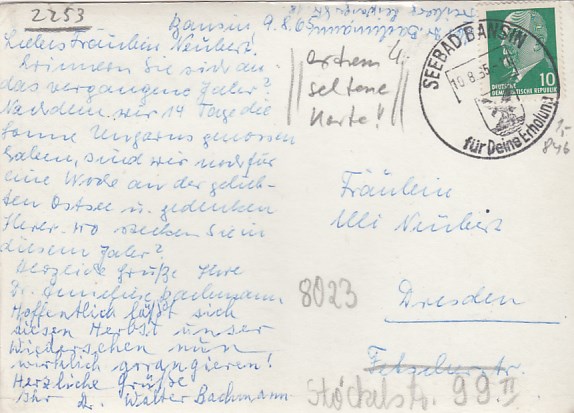 2253
Bansin 9.8.65
Liebes Fräulein Neubert!
Erinnern Sie sich an
das vergangene Jahr?
Nachdem wir 14 Tage die
Sonne Ungarns genossen
haben, sind wir noch für
eine Woche an der gelieb-
ten Ostsee u. gedenken
Ihrer. Wo stecken Sie in
diesem Jahr?
Herzliche Grüße Ihre
Dr. Bachmann
Hoffentlich läßt sich
diesen Herbst unser
Wiedersehen nun
wirklich arrangieren!
Herzliche Grüße
Ihr Dr. Walter Bachmann
extrem
seltene
Karte!!
SEEBAD BANSIN
10.8.65
für Deine Erholung
10
DEUTSCHE
DEMOKRATISCHE REPUBLIK
1,-
846
Fräulein
Ulli Neubert
8023
Dresden
Stöckelstr. 99 II